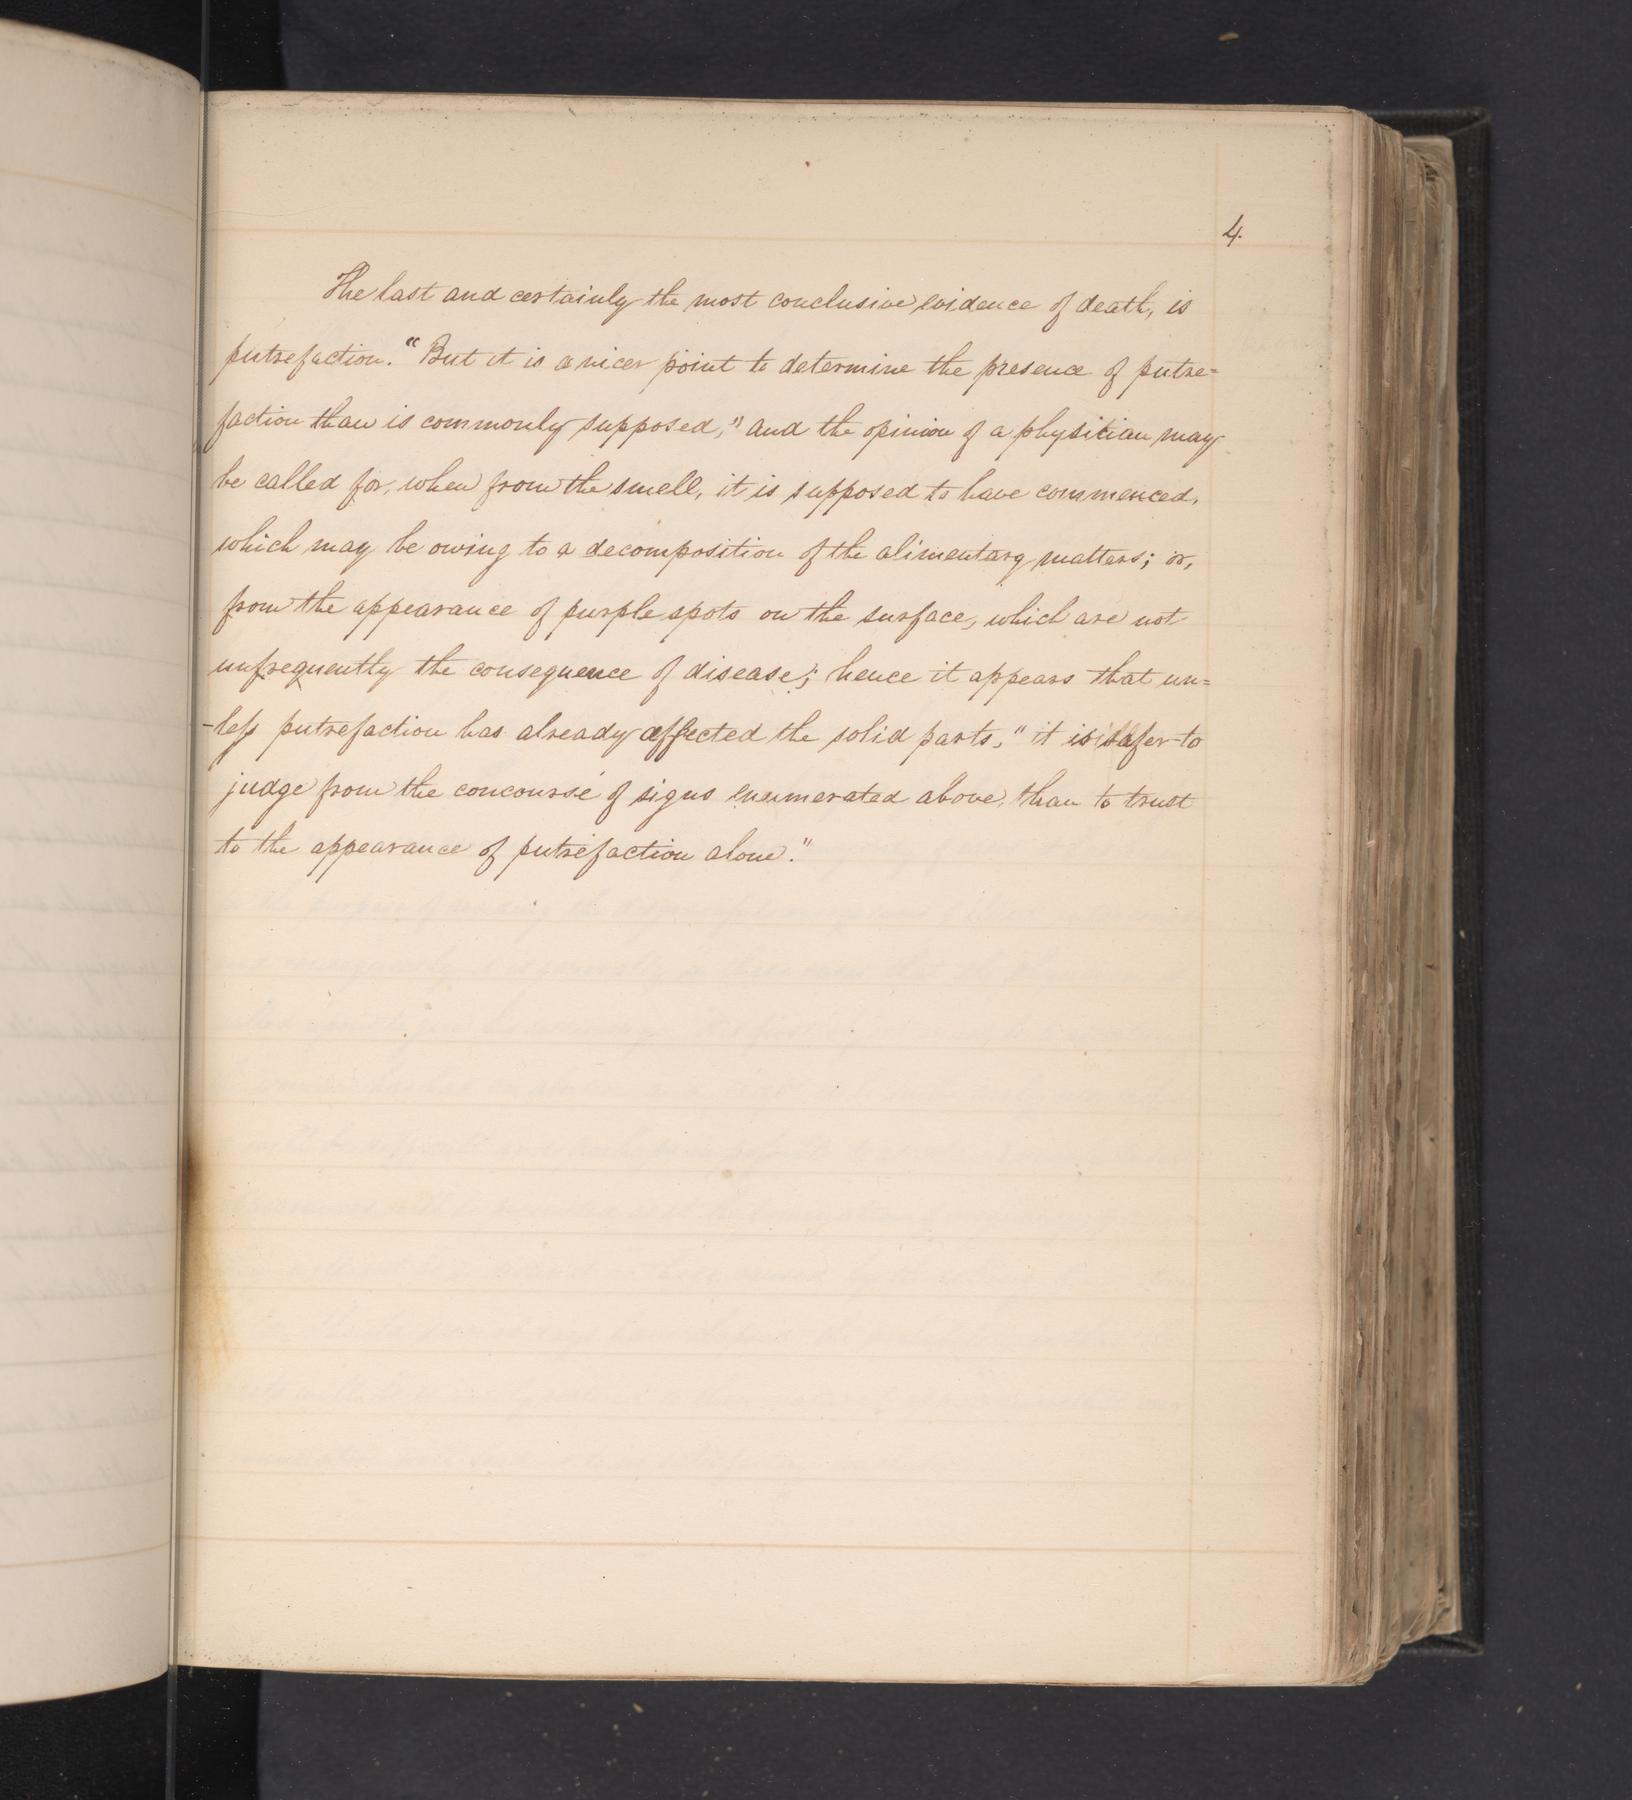 4.
The last and certainly the most conclusive evidence of death, is
putrefaction. "But it is a nicer point to determine the presence of putre=
faction than is commonly supposed," and the opinion of a physitian may
be called for, when from the smell, it is supposed to have commenced,
which may be owing to a decomposition of the alimentary matters; or,
from the appearance of purple spots on the surface, which are not
unfrequently the consequence of disease; hence it appears that un=
-less putrefaction has already affected the solid parts, "it is safer to
judge from the concourse of signs enumerated above, than to trust
to the appearance of putrefaction alone."